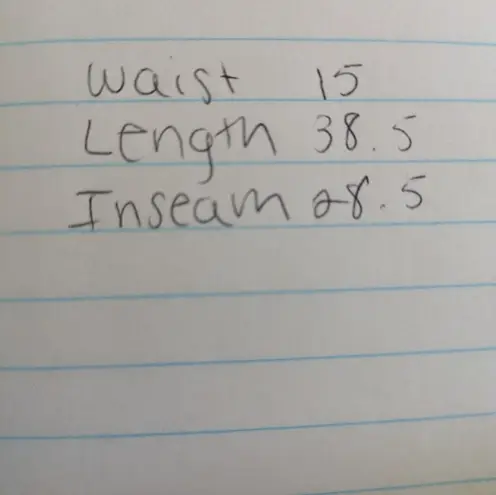 Waist 15
Length 38.5
Inseam 28.5